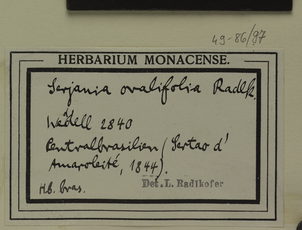 49-86/97
HERBARIUM MONACENSE.
Serjania ovalifolia Radlk.
Weddell 2840
Centralbrasilien (Sertao d'
Amaroleité, 1844).
Hb. bras.
Det. L. Radlkofer